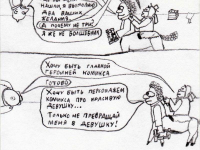 НАШЛИ, Я ВЫПОЛНЮ
ДВА ВАШИХ
ЖЕЛАНИЯ.
А ПОЧЕМУ НЕ ТРИ?
А Я НЕ ВОЛШЕБНИК
ХОЧУ БЫТЬ ГЛАВНОЙ
ГЕРОИНЕЙ КОМИКСА
ГОТОВО
ХОЧУ БЫТЬ ПЕРСОНАЖЕМ
КОМИКСА ПРО КРАСИВУЮ
ДЕВУШКУ...
ТОЛЬКО НЕ ПРЕВРАЩАЙ
МЕНЯ В ДЕВУШКУ!